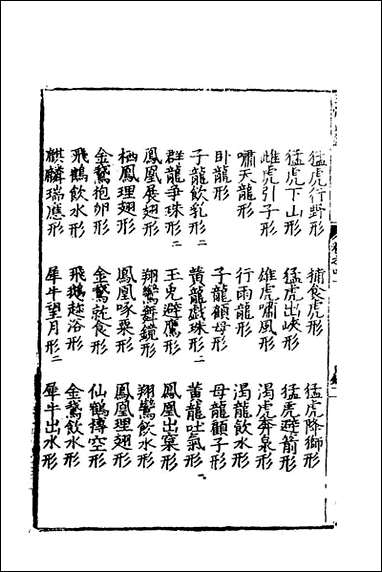 猛虎行野形 捕食虎形 猛虎降獅形
猛虎下山形 猛虎出峽形 猛虎避箭形
雌虎引子形 雄虎嘯風形 渴虎奔泉形
嘯天龍形 行雨龍形 渴龍飲水形
卧龍形 子龍顧母形 母龍顧子形
子龍飲乳形二 黃龍戲珠形二 黃龍吐氣形
群龍爭珠形二 玉兎避鷹形 鳳凰出窠形
鳳凰展翅形 翔鸞舞鏡形 翔鸞飲水形
栖鳳理翅形 鳳凰啄粟形 鳳凰理翅形
金鵞抱卵形 金鵞就食形 仙鶴摶空形
飛鵝飲水形 飛鵝趂浴形 金鵞飲水形
麒麟瑞應形 犀牛望月形二 犀牛出水形